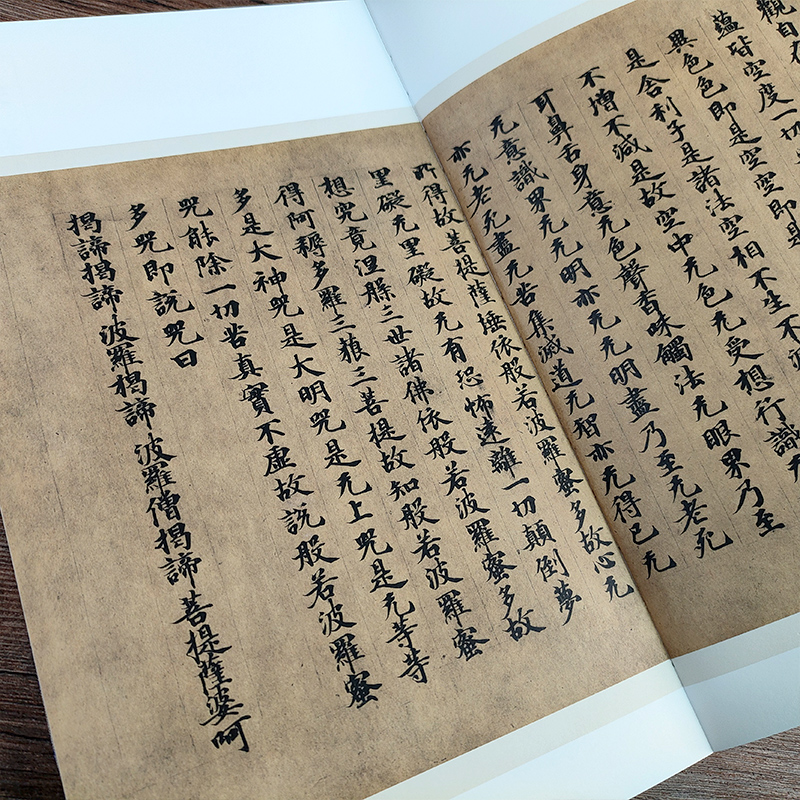 觀自在
蘊皆空度一切
異色色即是空空即是
是舍利子是諸法空相不生不
不增不減是故空中无色无受想行識无
耳鼻舌身意无色聲香味觸法无眼界乃至
无意識界无无明亦无无明盡乃至无老死
亦无老死盡无苦集滅道无智亦无得已无
所得故菩提薩埵依般若波羅蜜多故心无
里礙无里礙故无有恐怖遠離一切顛倒夢
想究竟涅槃三世諸佛依般若波羅蜜多故
得阿耨多羅三藐三菩提故知般若波羅蜜
多是大神咒是大明咒是无上咒是无等等
咒能除一切苦真實不虛故說般若波羅蜜
多咒即說咒曰
揭諦揭諦波羅揭諦 波羅僧揭諦 菩提薩婆呵